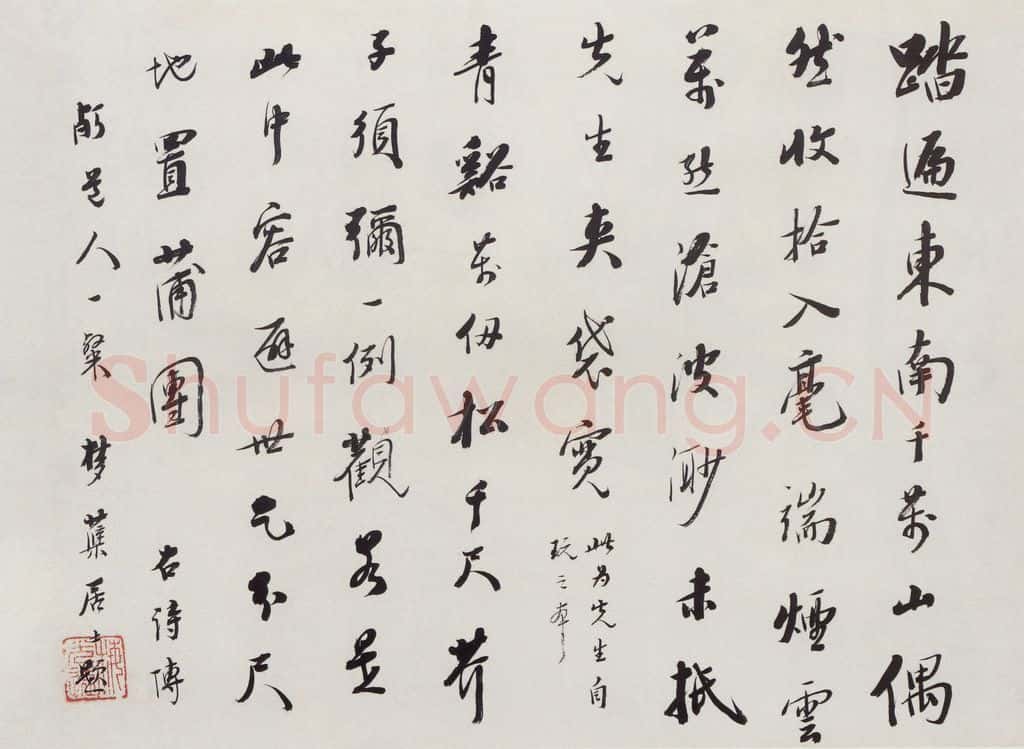 踏遍東南千萬山偶
然收拾入毫端煙雲
萬態滄波渺未抵
先生夾袋寬
此為先生自
玩之
青谿萬仞松千尺芥
子須彌一例觀若是
此中容避世乞分尺
地置蒲團
右詩博
道人一粲夢居士題
Shufawang.CN